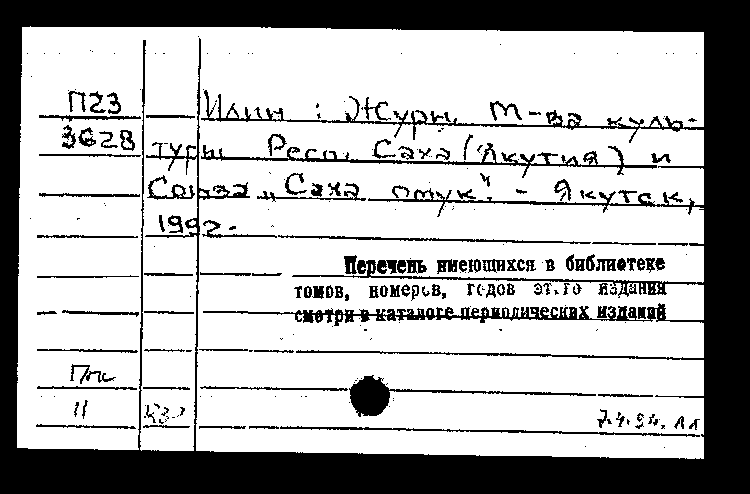 П23
3628
Илин : Журн. М-ва куль-
туры Респ. Саха (Якутия) и
Союза „Саха омук". - Якутск,
1992.
Перечень имеющихся в библиотеке
томов, номеров, годов этого издания
смотри в каталоге периодических изданий
11
7.4.94.